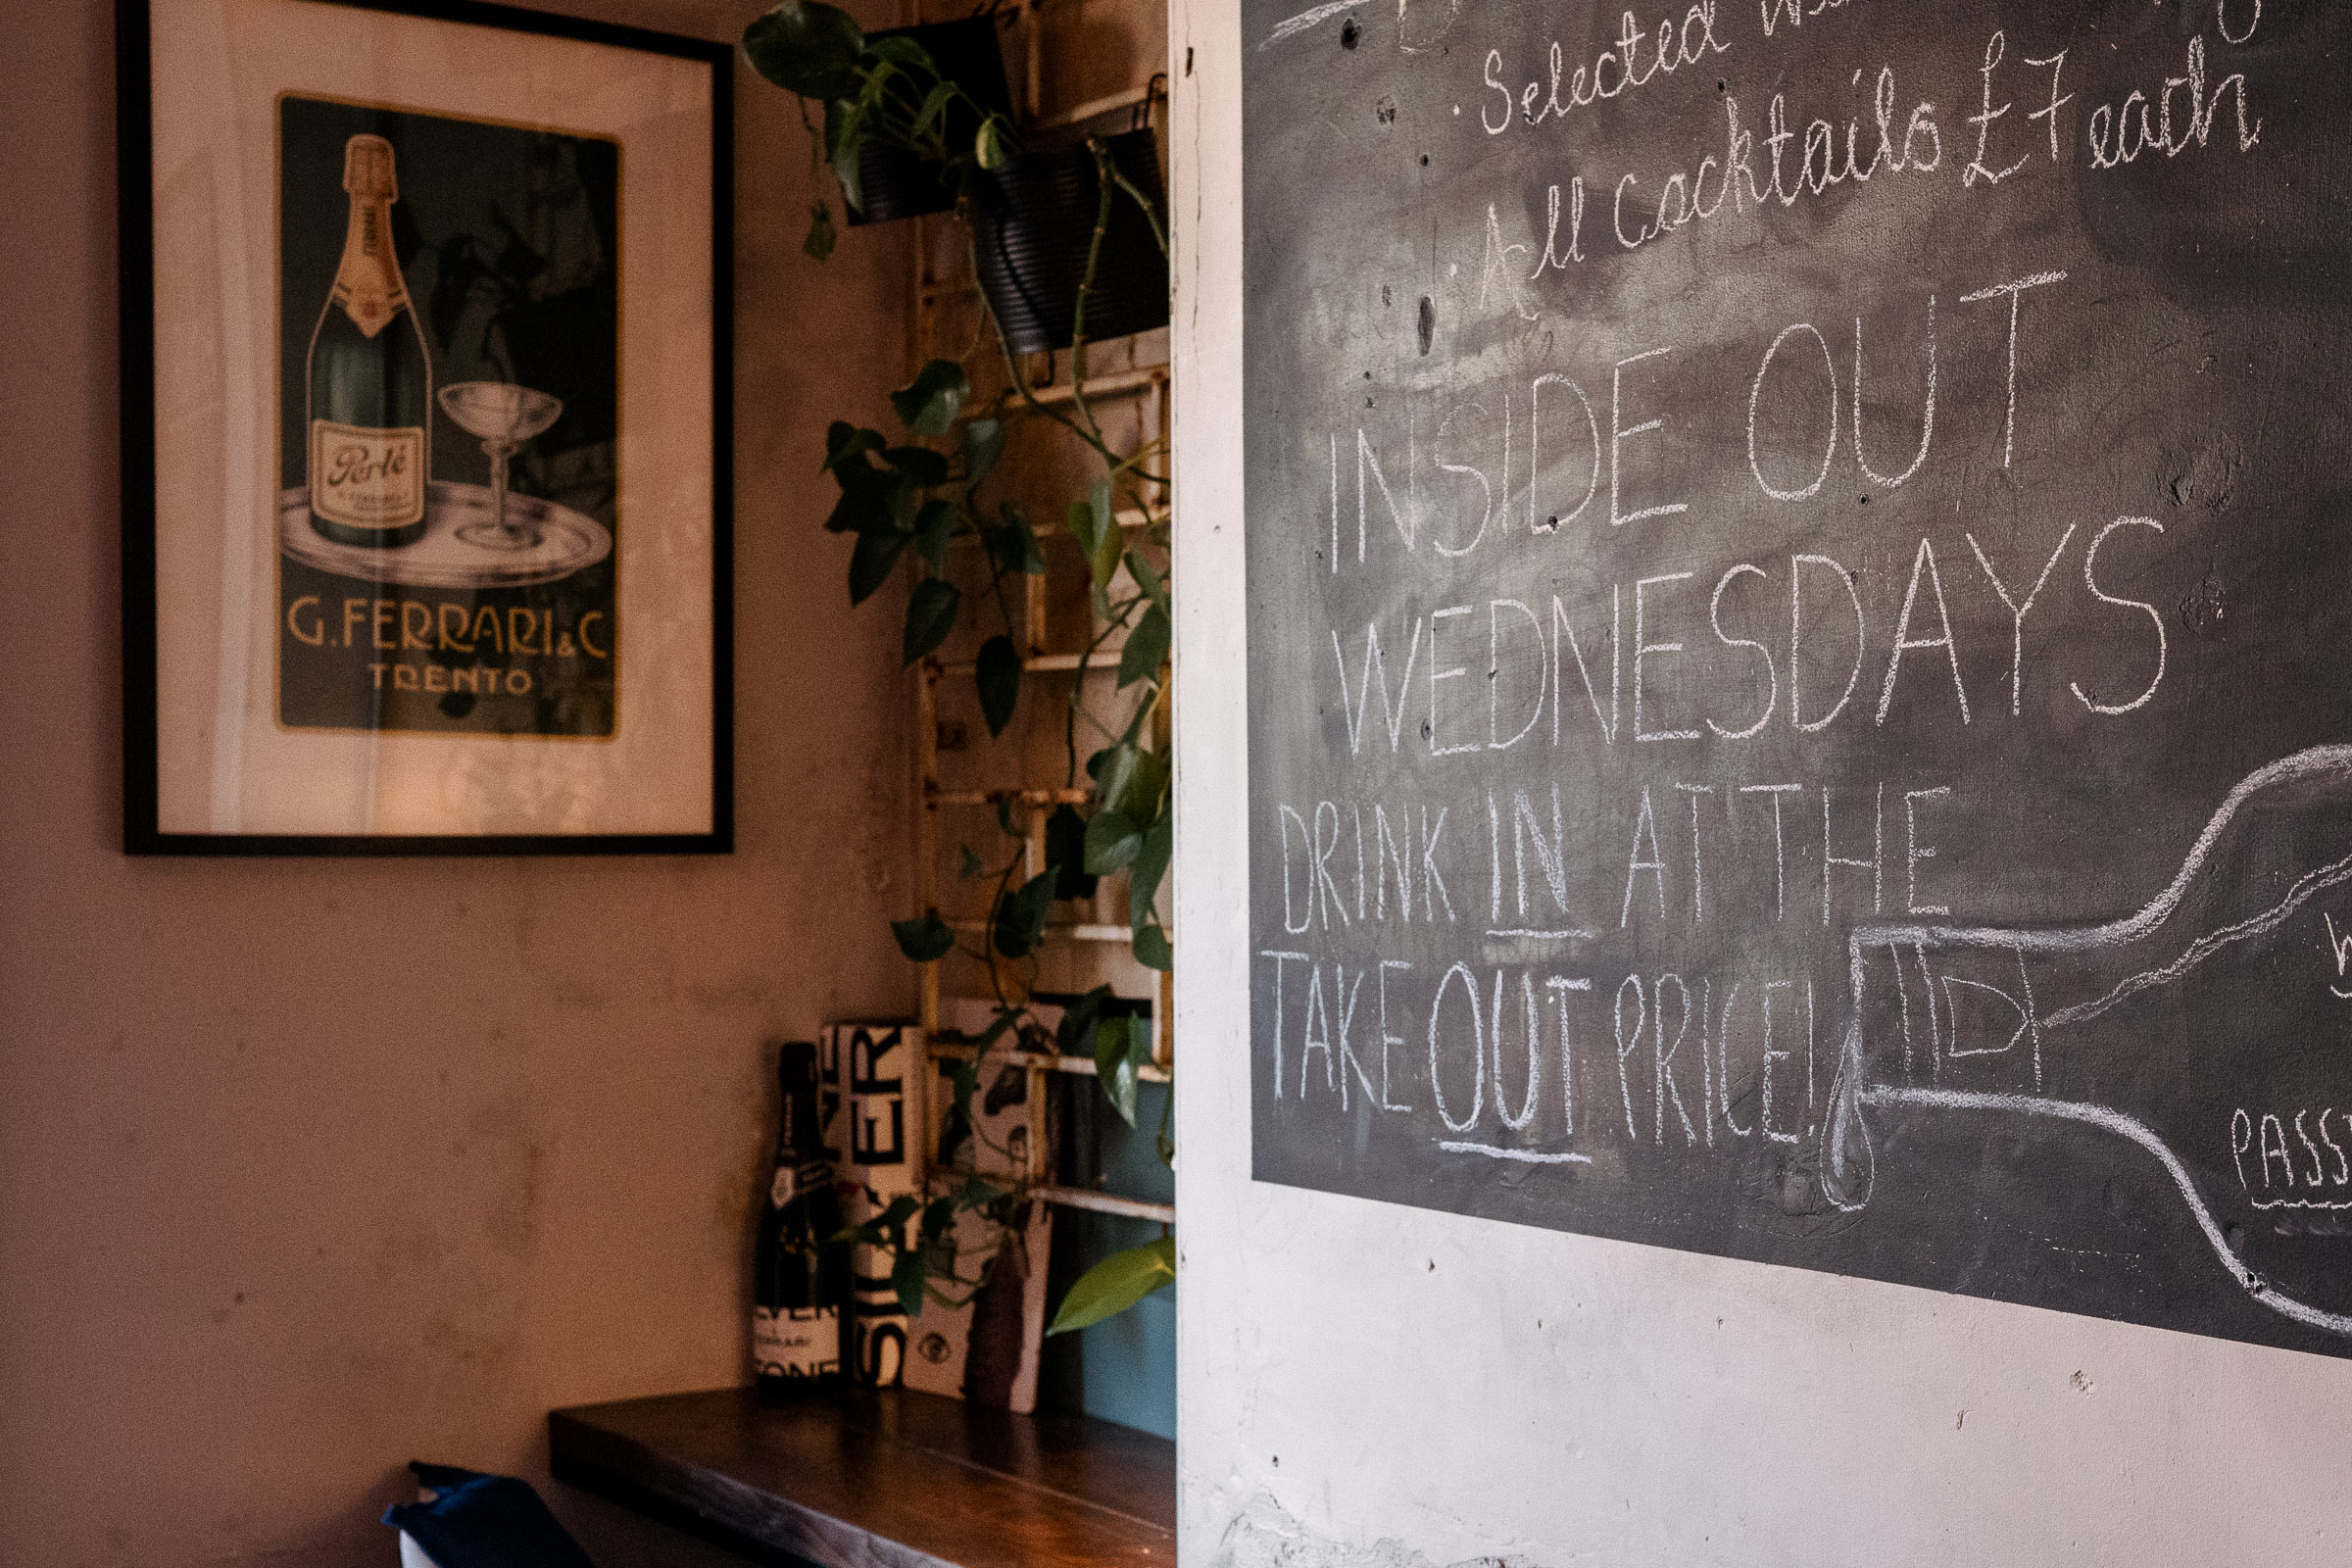 Perlé
G.FERRARI & C
TRENTO
SILVER
FERRARI
· Selected
· All Cocktails £7 each
INSIDE OUT
WEDNESDAYS
DRINK IN AT THE
TAKE OUT PRICE!